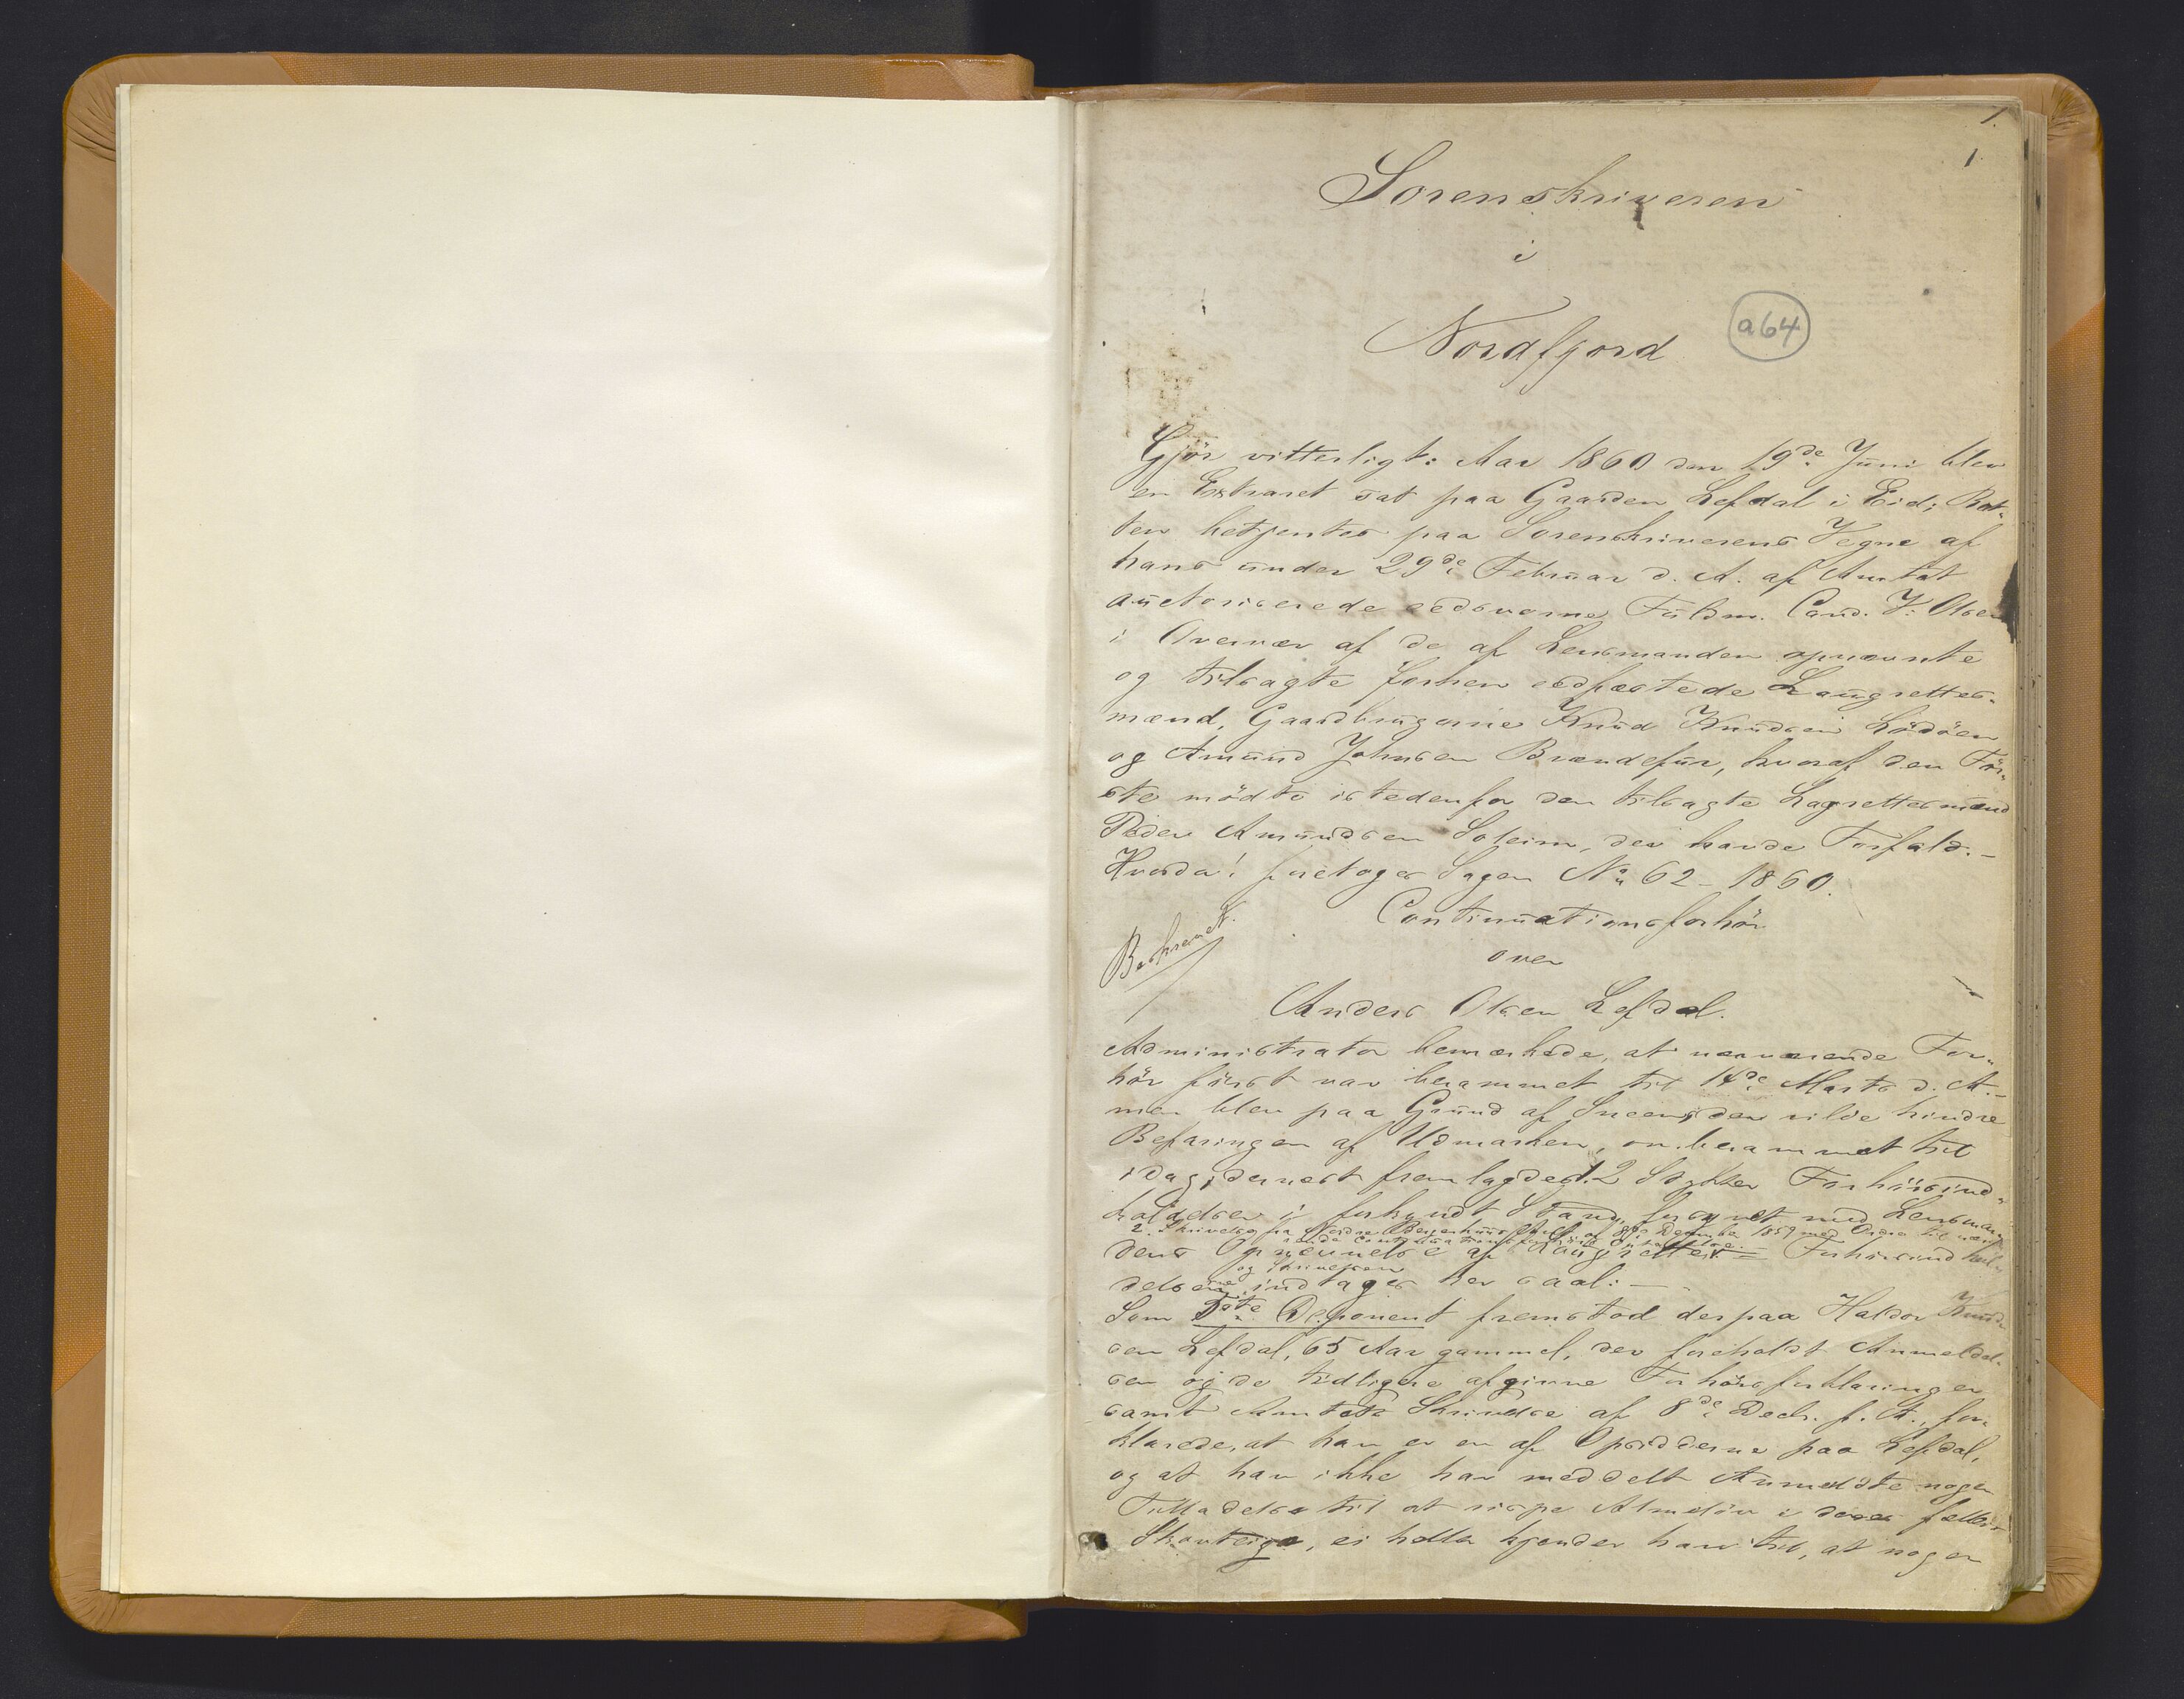 1.
1.
Sorenskriveren
i
Nordfjord
a64
Gjör vitterligt: Aar 1860 den 19de Juni blev
en Extraret sat paa Gaarden Lefdal i Eid; Ret-
ten betjentes paa Sorenskriverens Vegne af
hans under 29de Februar d. A. af Amtet
auctoriserede edsvorne Fuldm. Cand. J: Olsen
i Overvær af de af Lensmanden opnævnte
og tilsagte forhen edfæstede Laugrettes-
mænd, Gaardbrugerne Knud Knudsen Lödöen
og Amund Johnsen Brændefur, hvoraf den För-
ste mödte istedenfor den tilsagte Lagrettesmand
Peder Amundsen Soleim, der havde Forfald. -
Hvorda! foretoges Sagen No 62 - 1860.
Continuationsforhör
over
Beskrevet.
Anders Olsen Lefdal.
Administrator bemærkede, at nærværende For-
hör först var berammet til 14de Marts d. A. -
men blev paa Grund af Sneen, der vilde hindre
Befaringen af Udmarken, om berammet til
idag; dernæst fremlagdes 1. 2 Stykker Forhörsind-
kaldelser i forkyndt Stand, forsynet med Lensman-
2. Skrivelse fra Nordre Bergenhuus Amt af 8de December 1859 med Ordre til nærvæ-
rende Continuationsforhörs Optagelse
dens Opnævnelse af Laugretter. - Forhörsindkal-
og Skrivelsen
delserne indtages her saal: -
Som 5te Deponent fremstod derpaa Haldor Knud-
sen Lefdal, 65 Aar gammel, der foreholdt Anmeldel-
sen og de tidligere afgivne Forhörsforklaringer
samt Amtets Skrivelse af 8de Decbr. f. A., for-
klarede, at han er en af Opsidderne paa Lefdal,
og at han ikke har meddelt Anmeldte nogen
Tilladelse til at rispe Almelöv i deres fælles
Skovteige, ei heller kjender han til, at nogen